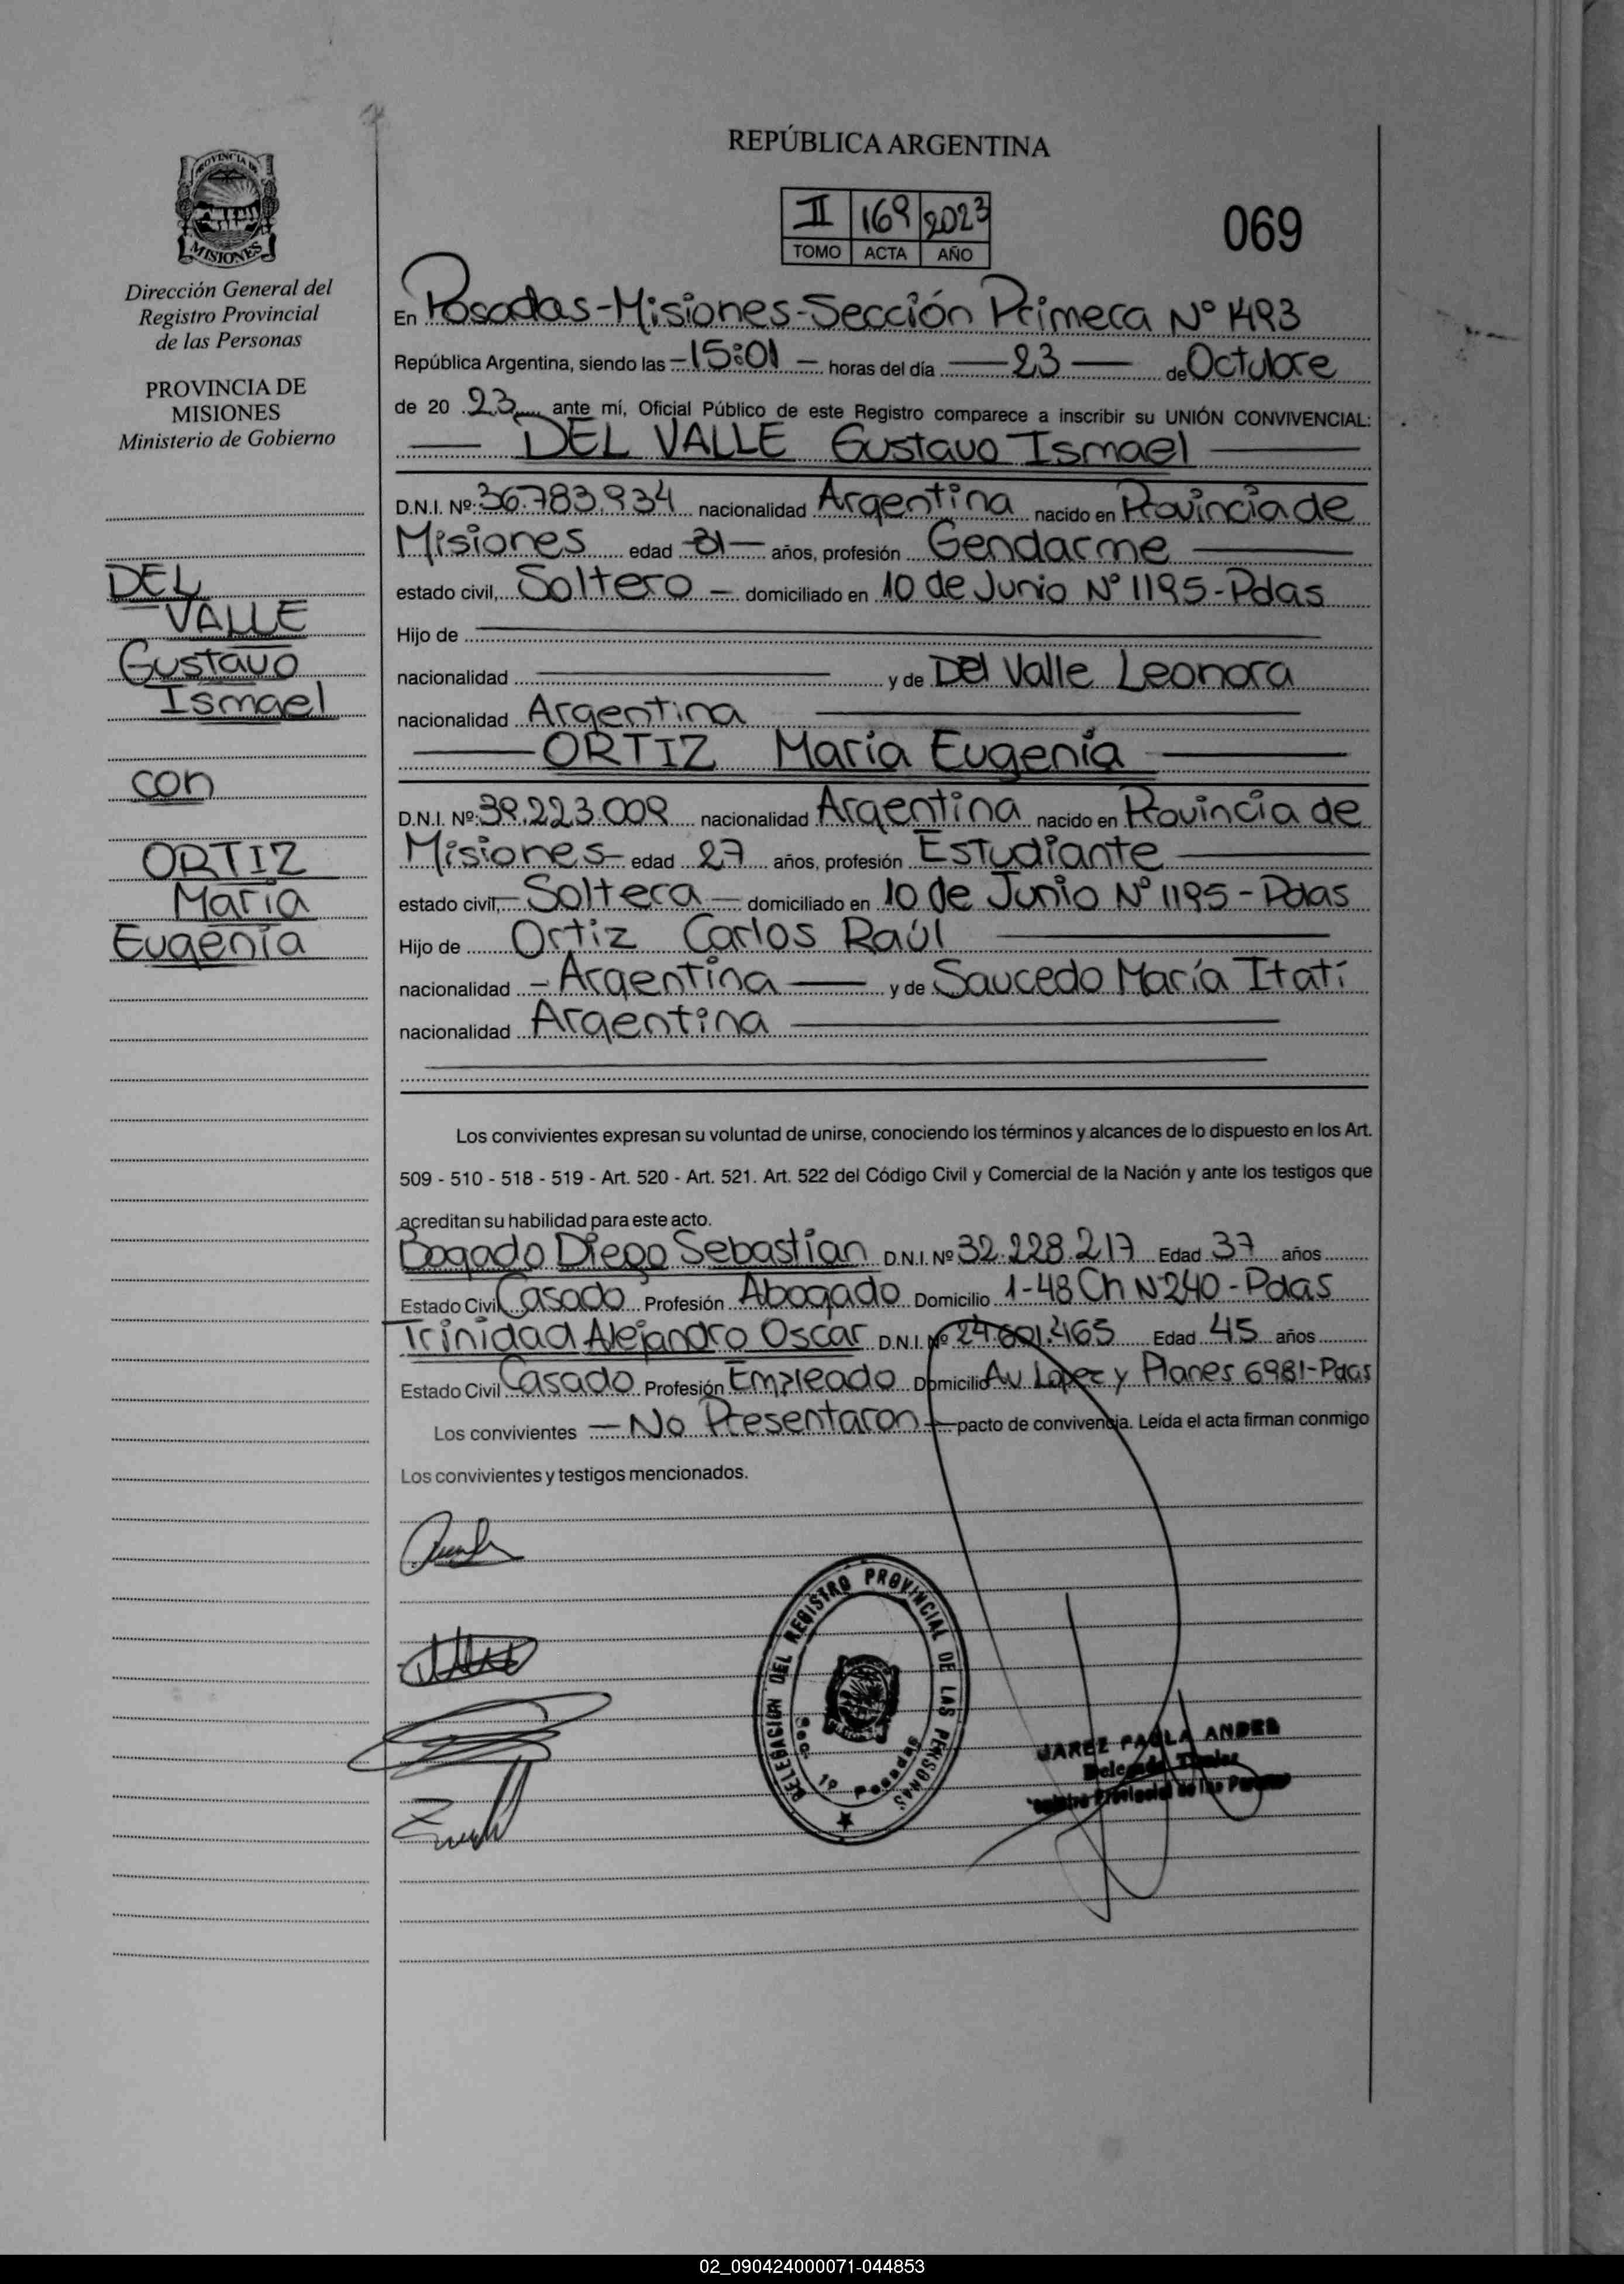 REPÚBLICA ARGENTINA
II 169 2023
TOMO ACTA AÑO
069
PROVINCIA DE
MISIONES
Dirección General del
Registro Provincial
de las Personas
PROVINCIA DE
MISIONES
Ministerio de Gobierno
DEL
VALLE
Gustavo
Ismael
con
ORTIZ
María
Eugenia
En Posadas-Misiones-Sección Primera Nº 1493
República Argentina, siendo las -15:01- horas del día 23 de Octubre
de 20 23 ante mí, Oficial Público de este Registro comparece a inscribir su UNIÓN CONVIVENCIAL:
DEL VALLE Gustavo Ismael
D.N.I. Nº: 36.783.934 nacionalidad Argentina nacido en Provincia de
Misiones edad 31 años, profesión Gendarme
estado civil, Soltero - domiciliado en 10 de Junio Nº 1195-Pdas
Hijo de
nacionalidad y de Del Valle Leonora
nacionalidad Argentina
ORTIZ María Eugenia
D.N.I. Nº: 39.223.009 nacionalidad Argentina nacido en Provincia de
Misiones edad 27 años, profesión Estudiante
estado civil, Soltera - domiciliado en 10 de Junio Nº 1195 - Pdas
Hijo de Ortiz Carlos Raúl
nacionalidad - Argentina y de Saucedo María Itatí
nacionalidad Argentina
Los convivientes expresan su voluntad de unirse, conociendo los términos y alcances de lo dispuesto en los Art.
509 - 510 - 518 - 519 - Art. 520 - Art. 521. Art. 522 del Código Civil y Comercial de la Nación y ante los testigos que
acreditan su habilidad para este acto.
Bogado Diego Sebastian D.N.I. Nº 32.228.217 Edad 37 años
Estado Civil Casado Profesión Abogado Domicilio 1-48 Ch N240-Pdas
Trinidad Alejandro Oscar D.N.I. Nº 24.601.465 Edad 45 años
Estado Civil Casado Profesión Empleado Domicilio Av Lopez y Planes 6981-Pdas
Los convivientes - No Presentaron - pacto de convivencia. Leída el acta firman conmigo
Los convivientes y testigos mencionados.
DELEGACION DEL REGISTRO PROVINCIAL DE LAS PERSONAS
Sec. 1º Posadas
JAREZ PAOLA ANDREA
Delegada Titular
Registro Provincial de las Personas
02_090424000071-044853